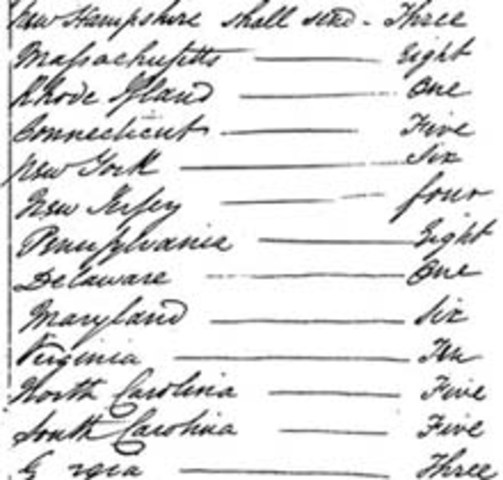 New Hampshire shall send - Three
Massachusetts — Eight
Rhode Island — One
Connecticut — Five
New York — Six
New Jersey — four
Pennsylvania — Eight
Delaware — One
Maryland — Six
Virginia — Ten
North Carolina — Five
South Carolina — Five
Georgia — Three